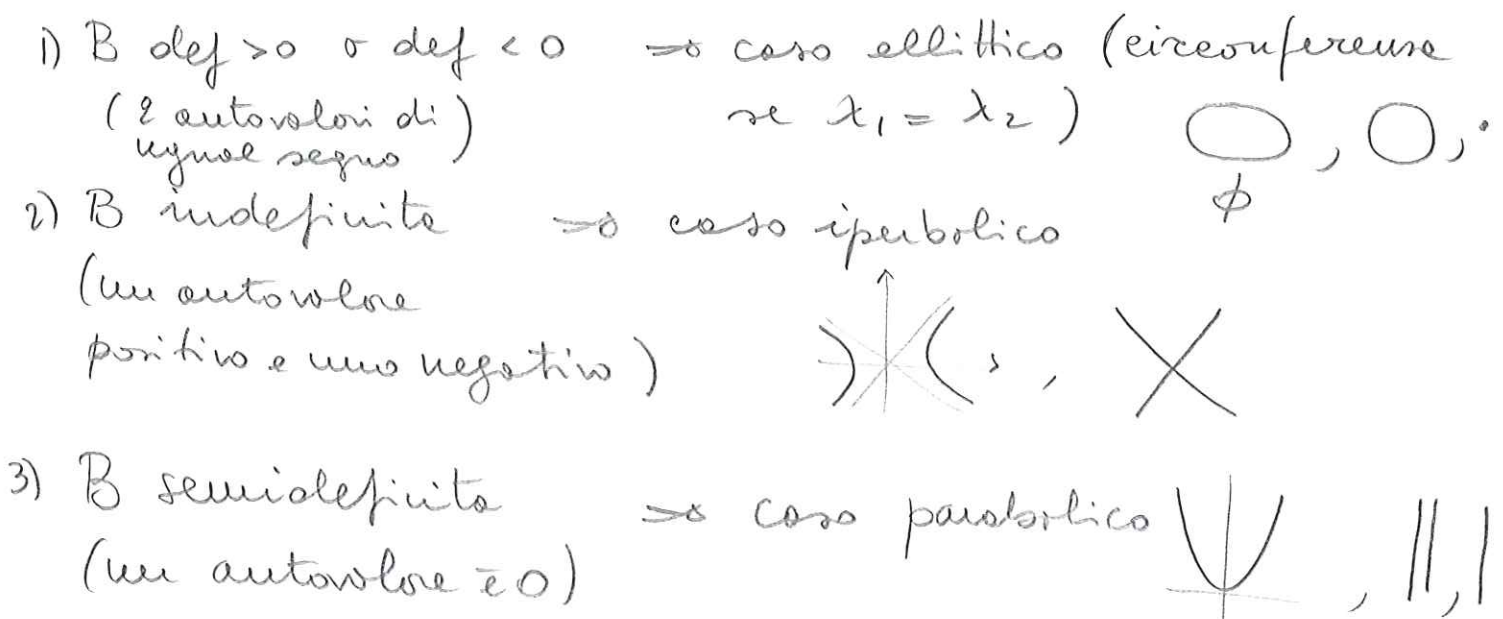 1) B def >0 o def <0 ⇒ caso ellittico (circonferenza
(2 autovalori di ugual segno) se λ₁ = λ₂) , , .
ϕ
2) B indefinita ⇒ caso iperbolico
(un autovalore
positivo e uno negativo) , ,
3) B semidefinita ⇒ caso parabolico , ,
(un autovalore è 0)